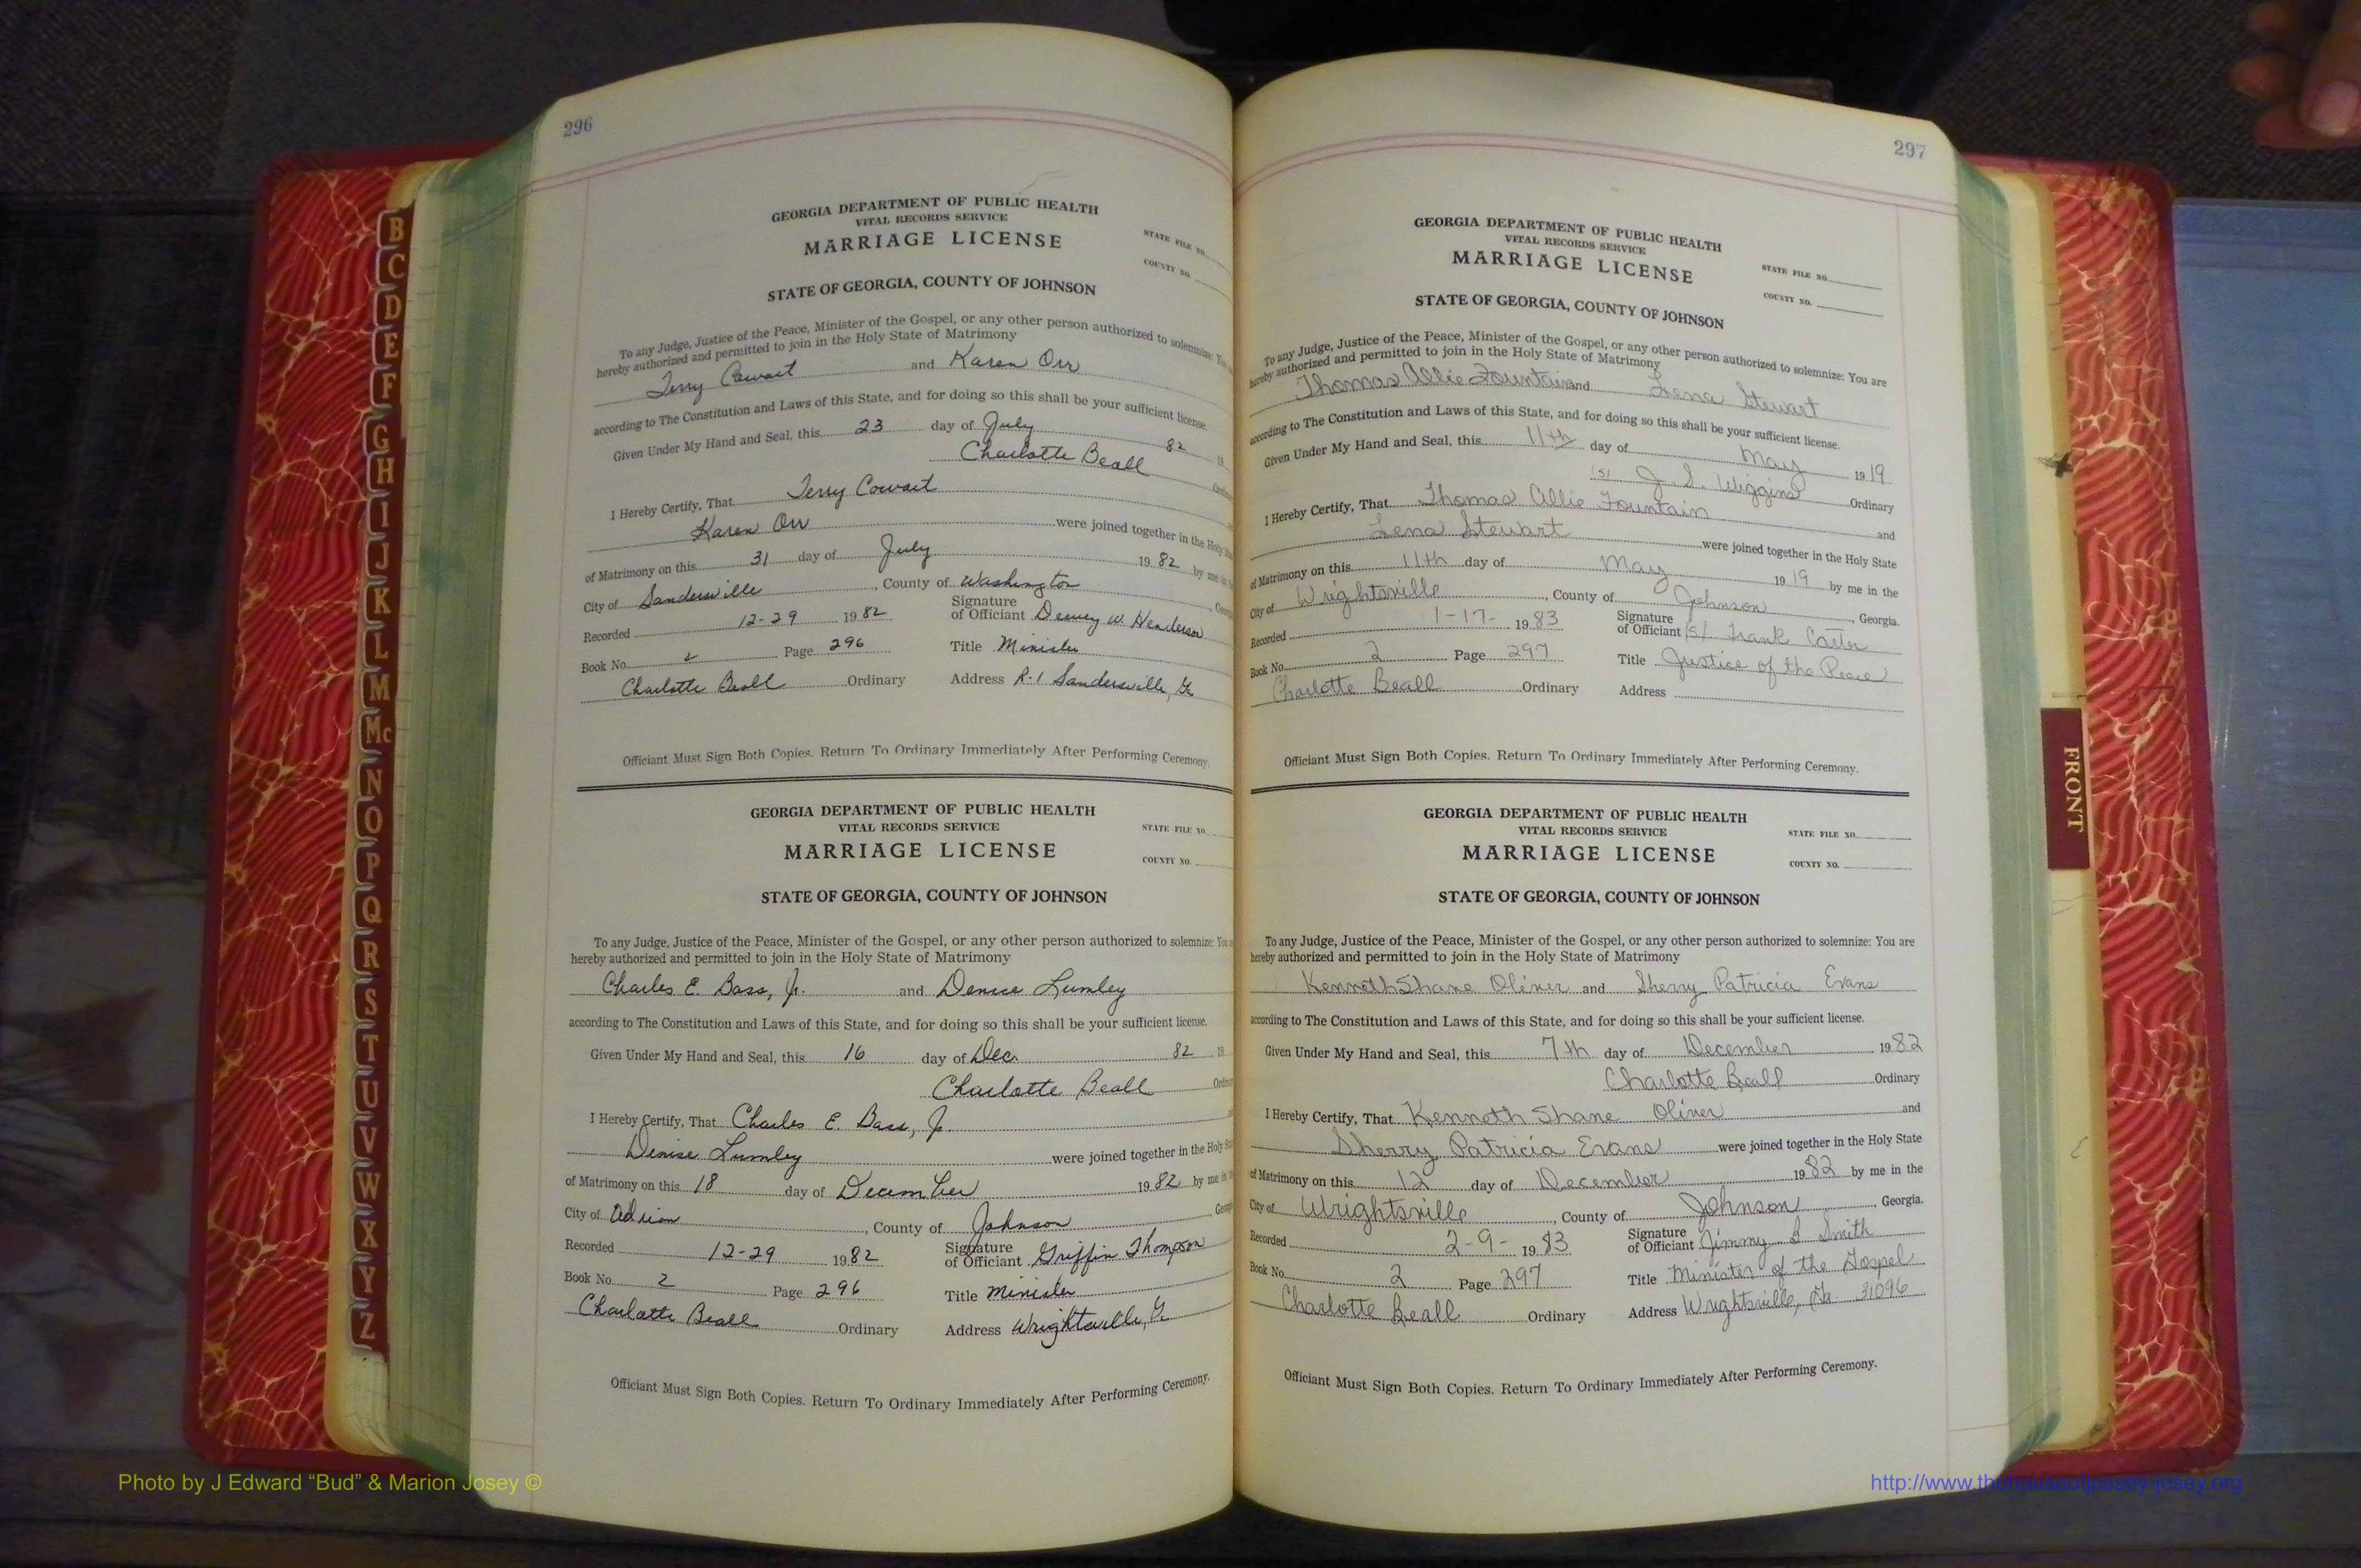 296
GEORGIA DEPARTMENT OF PUBLIC HEALTH
VITAL RECORDS SERVICE
MARRIAGE LICENSE
STATE FILE NO.
COUNTY NO.
STATE OF GEORGIA, COUNTY OF JOHNSON
To any Judge, Justice of the Peace, Minister of the Gospel, or any other person authorized to solemnize: You
hereby authorized and permitted to join in the Holy State of Matrimony
Terry Cowart and Karen Orr
according to The Constitution and Laws of this State, and for doing so this shall be your sufficient license.
Given Under My Hand and Seal, this 23 day of July 82 19
Charlotte Beall
I Hereby Certify, That Terry Cowart
Karen Orr were joined together in the Holy
of Matrimony on this 31 day of July 1982 by me in
City of Sandersville, County of Washington
Recorded 12-29 1982 Signature of Officiant Dewey W. Henderson
Book No. 2 Page 296 Title Minister
Charlotte Beall Ordinary Address R-1 Sandersville, Ga
Officiant Must Sign Both Copies. Return To Ordinary Immediately After Performing Ceremony.
GEORGIA DEPARTMENT OF PUBLIC HEALTH
VITAL RECORDS SERVICE
MARRIAGE LICENSE
STATE FILE NO.
COUNTY NO.
STATE OF GEORGIA, COUNTY OF JOHNSON
To any Judge, Justice of the Peace, Minister of the Gospel, or any other person authorized to solemnize: You
hereby authorized and permitted to join in the Holy State of Matrimony
Charles E. Bass, Jr. and Denise Lumley
according to The Constitution and Laws of this State, and for doing so this shall be your sufficient license.
Given Under My Hand and Seal, this 16 day of Dec. 82 19
Charlotte Beall
I Hereby Certify, That Charles E. Bass, Jr.
Denise Lumley were joined together in the Holy
of Matrimony on this 18 day of December 1982 by me in
City of Adrian, County of Johnson
Recorded 12-29 1982 Signature of Officiant Griffin Thompson
Book No. 2 Page 296 Title Minister
Charlotte Beall Ordinary Address Wrightsville, Ga
Officiant Must Sign Both Copies. Return To Ordinary Immediately After Performing Ceremony.
297
GEORGIA DEPARTMENT OF PUBLIC HEALTH
VITAL RECORDS SERVICE
MARRIAGE LICENSE
STATE FILE NO.
COUNTY NO.
STATE OF GEORGIA, COUNTY OF JOHNSON
To any Judge, Justice of the Peace, Minister of the Gospel, or any other person authorized to solemnize: You are
hereby authorized and permitted to join in the Holy State of Matrimony
Thomas Ollie Fountain and Lena Stewart
according to The Constitution and Laws of this State, and for doing so this shall be your sufficient license.
Given Under My Hand and Seal, this 11th day of May 1919
(s) J. S. Wiggins Ordinary
I Hereby Certify, That Thomas Ollie Fountain and
Lena Stewart were joined together in the Holy State
of Matrimony on this 11th day of May 1919 by me in the
City of Wrightsville, County of Johnson, Georgia.
Recorded 1-17- 1983 Signature of Officiant /s/ Frank Carter
Book No. 2 Page 297 Title Justice of the Peace
Charlotte Beall Ordinary Address
Officiant Must Sign Both Copies. Return To Ordinary Immediately After Performing Ceremony.
GEORGIA DEPARTMENT OF PUBLIC HEALTH
VITAL RECORDS SERVICE
MARRIAGE LICENSE
STATE FILE NO.
COUNTY NO.
STATE OF GEORGIA, COUNTY OF JOHNSON
To any Judge, Justice of the Peace, Minister of the Gospel, or any other person authorized to solemnize: You are
hereby authorized and permitted to join in the Holy State of Matrimony
Kenneth Shane Oliver and Sherry Patricia Evans
according to The Constitution and Laws of this State, and for doing so this shall be your sufficient license.
Given Under My Hand and Seal, this 7th day of December 1982
Charlotte Beall Ordinary
I Hereby Certify, That Kenneth Shane Oliver and
Sherry Patricia Evans were joined together in the Holy State
of Matrimony on this 12 day of December 1982 by me in the
City of Wrightsville, County of Johnson, Georgia.
Recorded 2-9- 1983 Signature of Officiant Jimmy B Smith
Book No. 2 Page 297 Title Minister of the Gospel
Charlotte Beall Ordinary Address Wrightsville, Ga. 31096
Officiant Must Sign Both Copies. Return To Ordinary Immediately After Performing Ceremony.
B
C
D
E
F
G
H
I
J
K
L
M
Mc
N
O
P
Q
R
S
T
U
V
W
X
Y
Z
FRONT
Photo by J Edward “Bud” & Marion Josey ©
http://www.thehouseofjossey-josey.org